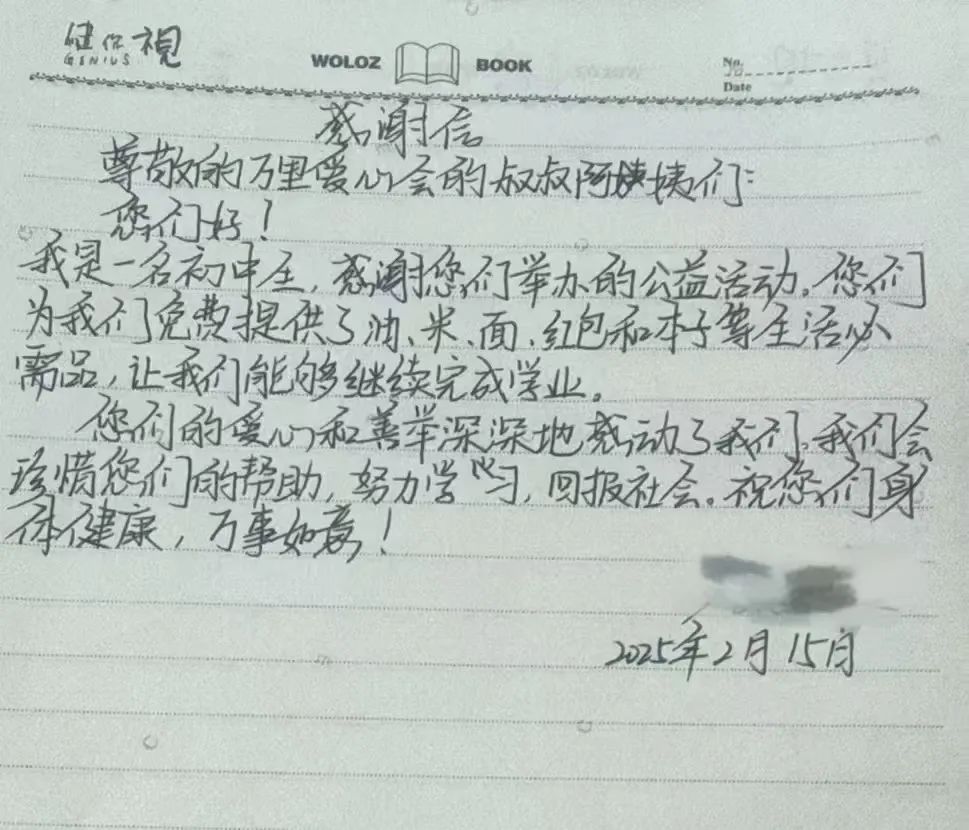 健你視
GENIUS
WOLOZ BOOK
No.
Date
感谢信
尊敬的万里爱心会的叔叔阿姨姨们:
您们好!
我是一名初中生,感谢您们举办的公益活动。您们
为我们免费提供了油、米、面、红包和本子等生活必
需品,让我们能够继续完成学业。
您们的爱心和善举深深地感动了我们,我们会
珍惜您们的帮助,努力学习,回报社会。祝您们身
体健康,万事如意!
2025年2月15日